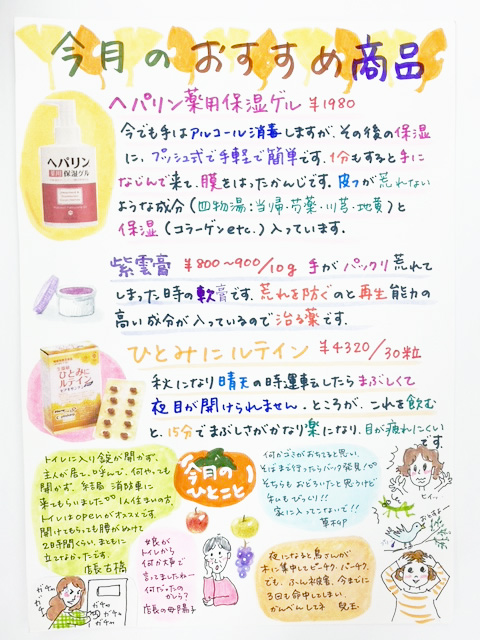 今月のおすすめ商品
ヘパリン薬用保湿ゲル ¥1980
今でも手はアルコール消毒しますが、その後の保湿
に、プッシュ式で手軽で簡単です。1分もすると手に
なじんで来て、膜をはったかんじです。皮フが荒れない
ような成分(四物湯:当帰・芍薬・川芎・地黄)と
保湿(コラーゲンetc.)入っています。
ヘパリン
薬用 保湿ゲル
紫雲膏 ¥800〜900/10g 手がパックリ荒れて
しまった時の軟膏です。荒れを防ぐのと再生能力の
高い成分が入っているので治る薬です。
ひとみにルテイン ¥4320/30粒
ひとみに
ルテイン
秋になり晴天の時運転したらまぶしくて
夜目が開けられません。ところが、これを飲む
と、15分でまぶしさがかなり楽になり、目が疲れにくい
です。
トイレに入り錠が開かず、
主人が居ず、呼んで、何やっても
開かず、結局 消防車に
来てもらいました 1人住まいの方、
トイレはopenがオススメです。
開けてもらっても腰がぬけて
2時間くらい、まともに
立てなかったです。
店長 古橋
今月の
ひとこと!
何かゴミがおちてると思い、
そばまで行ったらバッタ発見!
そちらもおどろいたと思うけど
私もビックリ!!
家に入ってこないで!!
ヒィ…
ガチャ
ガチャ
娘が
トイレから
何か大声で
言ってましたね…
何だったの
かしら?
店長の母 陽子
夜になると鳥さんが
木に集中してピーチク、パーチク、
でも、ふん被害、今までに
3回も命中してしまい、
かんべんしてネ 児玉